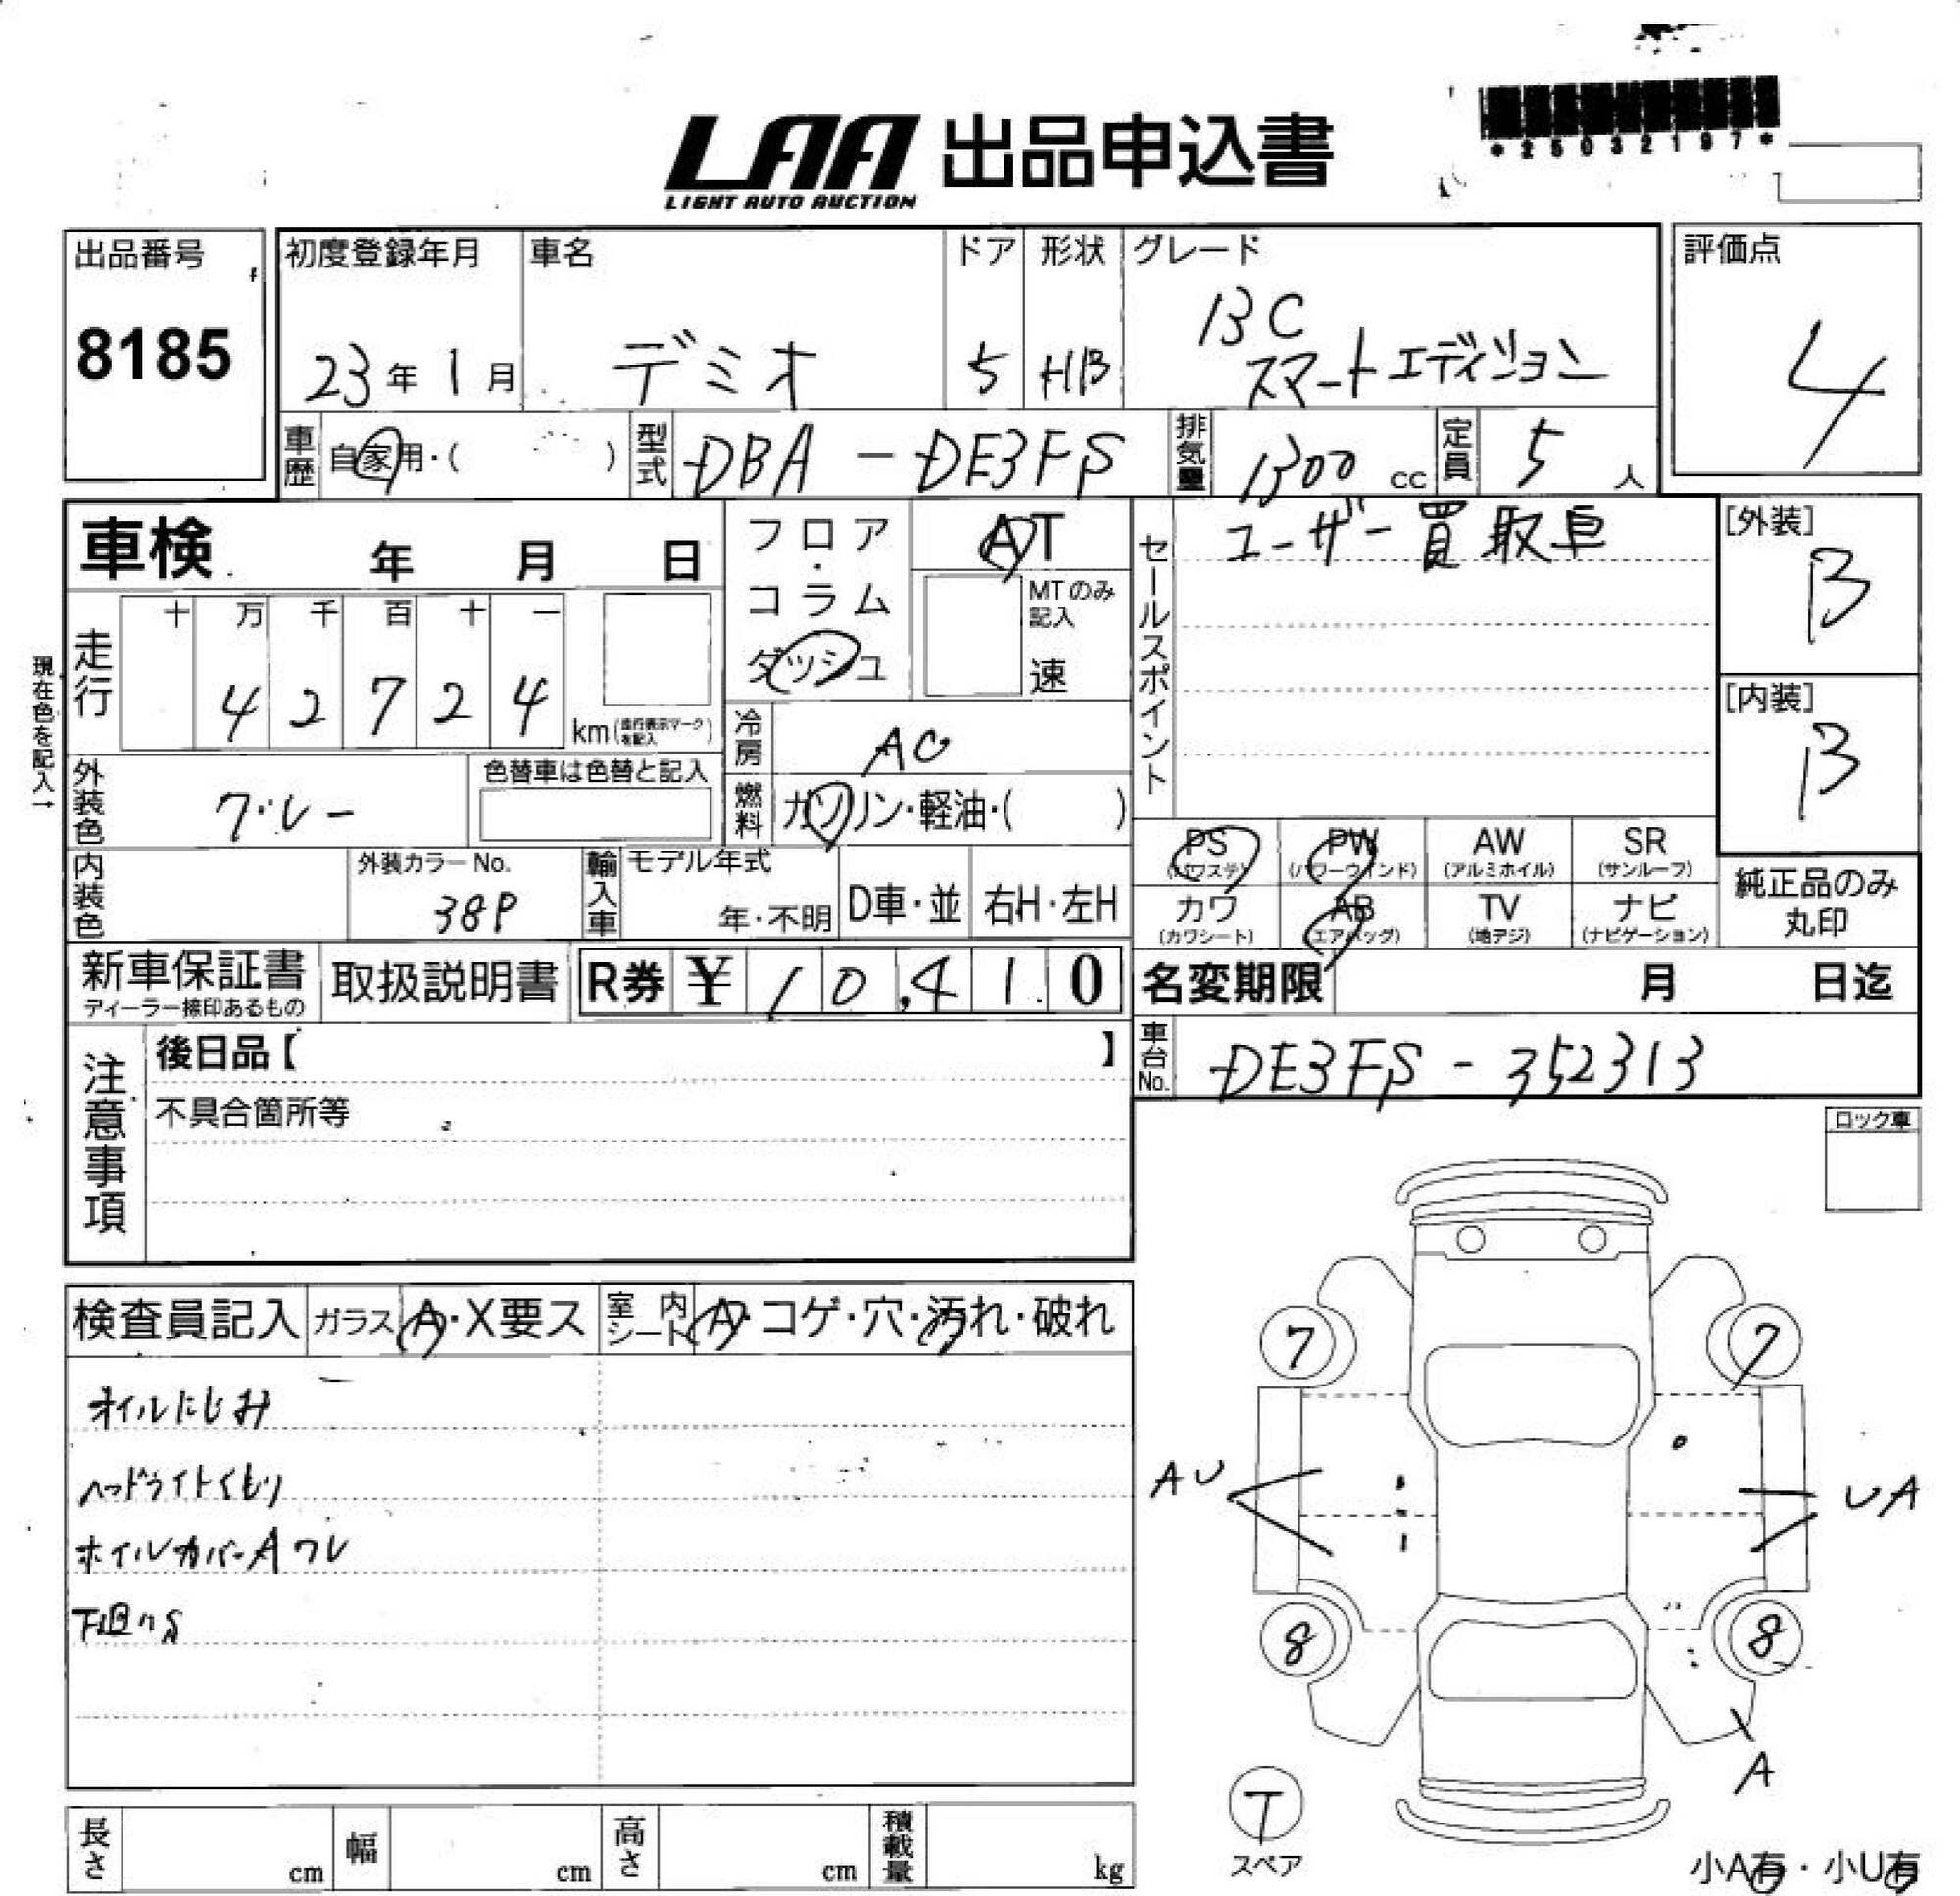 LAA 出品申込書
LIGHT AUTO AUCTION
*25032197*
出品番号
8185
初度登録年月
23年1月
車名
デミオ
ドア
5
形状
HB
グレード
13C
スマートエディション
評価点
4
車歴
自家用・( )
型式
DBA-DE3FS
排気量
1300 cc
定員
5 人
車検 年 月 日
フロア・コラム
ダッシュ
AT
MTのみ記入
速
セールスポイント
ユーザー買取車
[外装]
B
[内装]
B
現在色を記入→
走行
十 万 千 百 十 一
4 2 7 2 4
km(走行表示マークを記入)
冷房
AC
外装色
グレー
色替車は色替と記入
燃料
ガソリン・軽油・( )
内装色
外装カラーNo.
38P
輸入車
モデル年式
年・不明
D車・並
右H・左H
PS
(パワステ)
PW
(パワーウインド)
AW
(アルミホイル)
SR
(サンルーフ)
カワ
(カワシート)
AB
(エアバッグ)
TV
(地デジ)
ナビ
(ナビゲーション)
純正品のみ
丸印
新車保証書
ディーラー捺印あるもの
取扱説明書
R券 ¥ 10,410
名変期限 月 日迄
車台No.
DE3FS-352313
注意事項
後日品【 】
不具合箇所等
ロック車
検査員記入
ガラス
A・X要ス
室内シート
A・コゲ・穴・汚れ・破れ
オイルにじみ
ヘッドライトくもり
ホイルカバーAワレ
7
7
AU
UA
8
8
A
T
スペア
小A有・小U有
長さ cm
幅 cm
高さ cm
積載量 kg